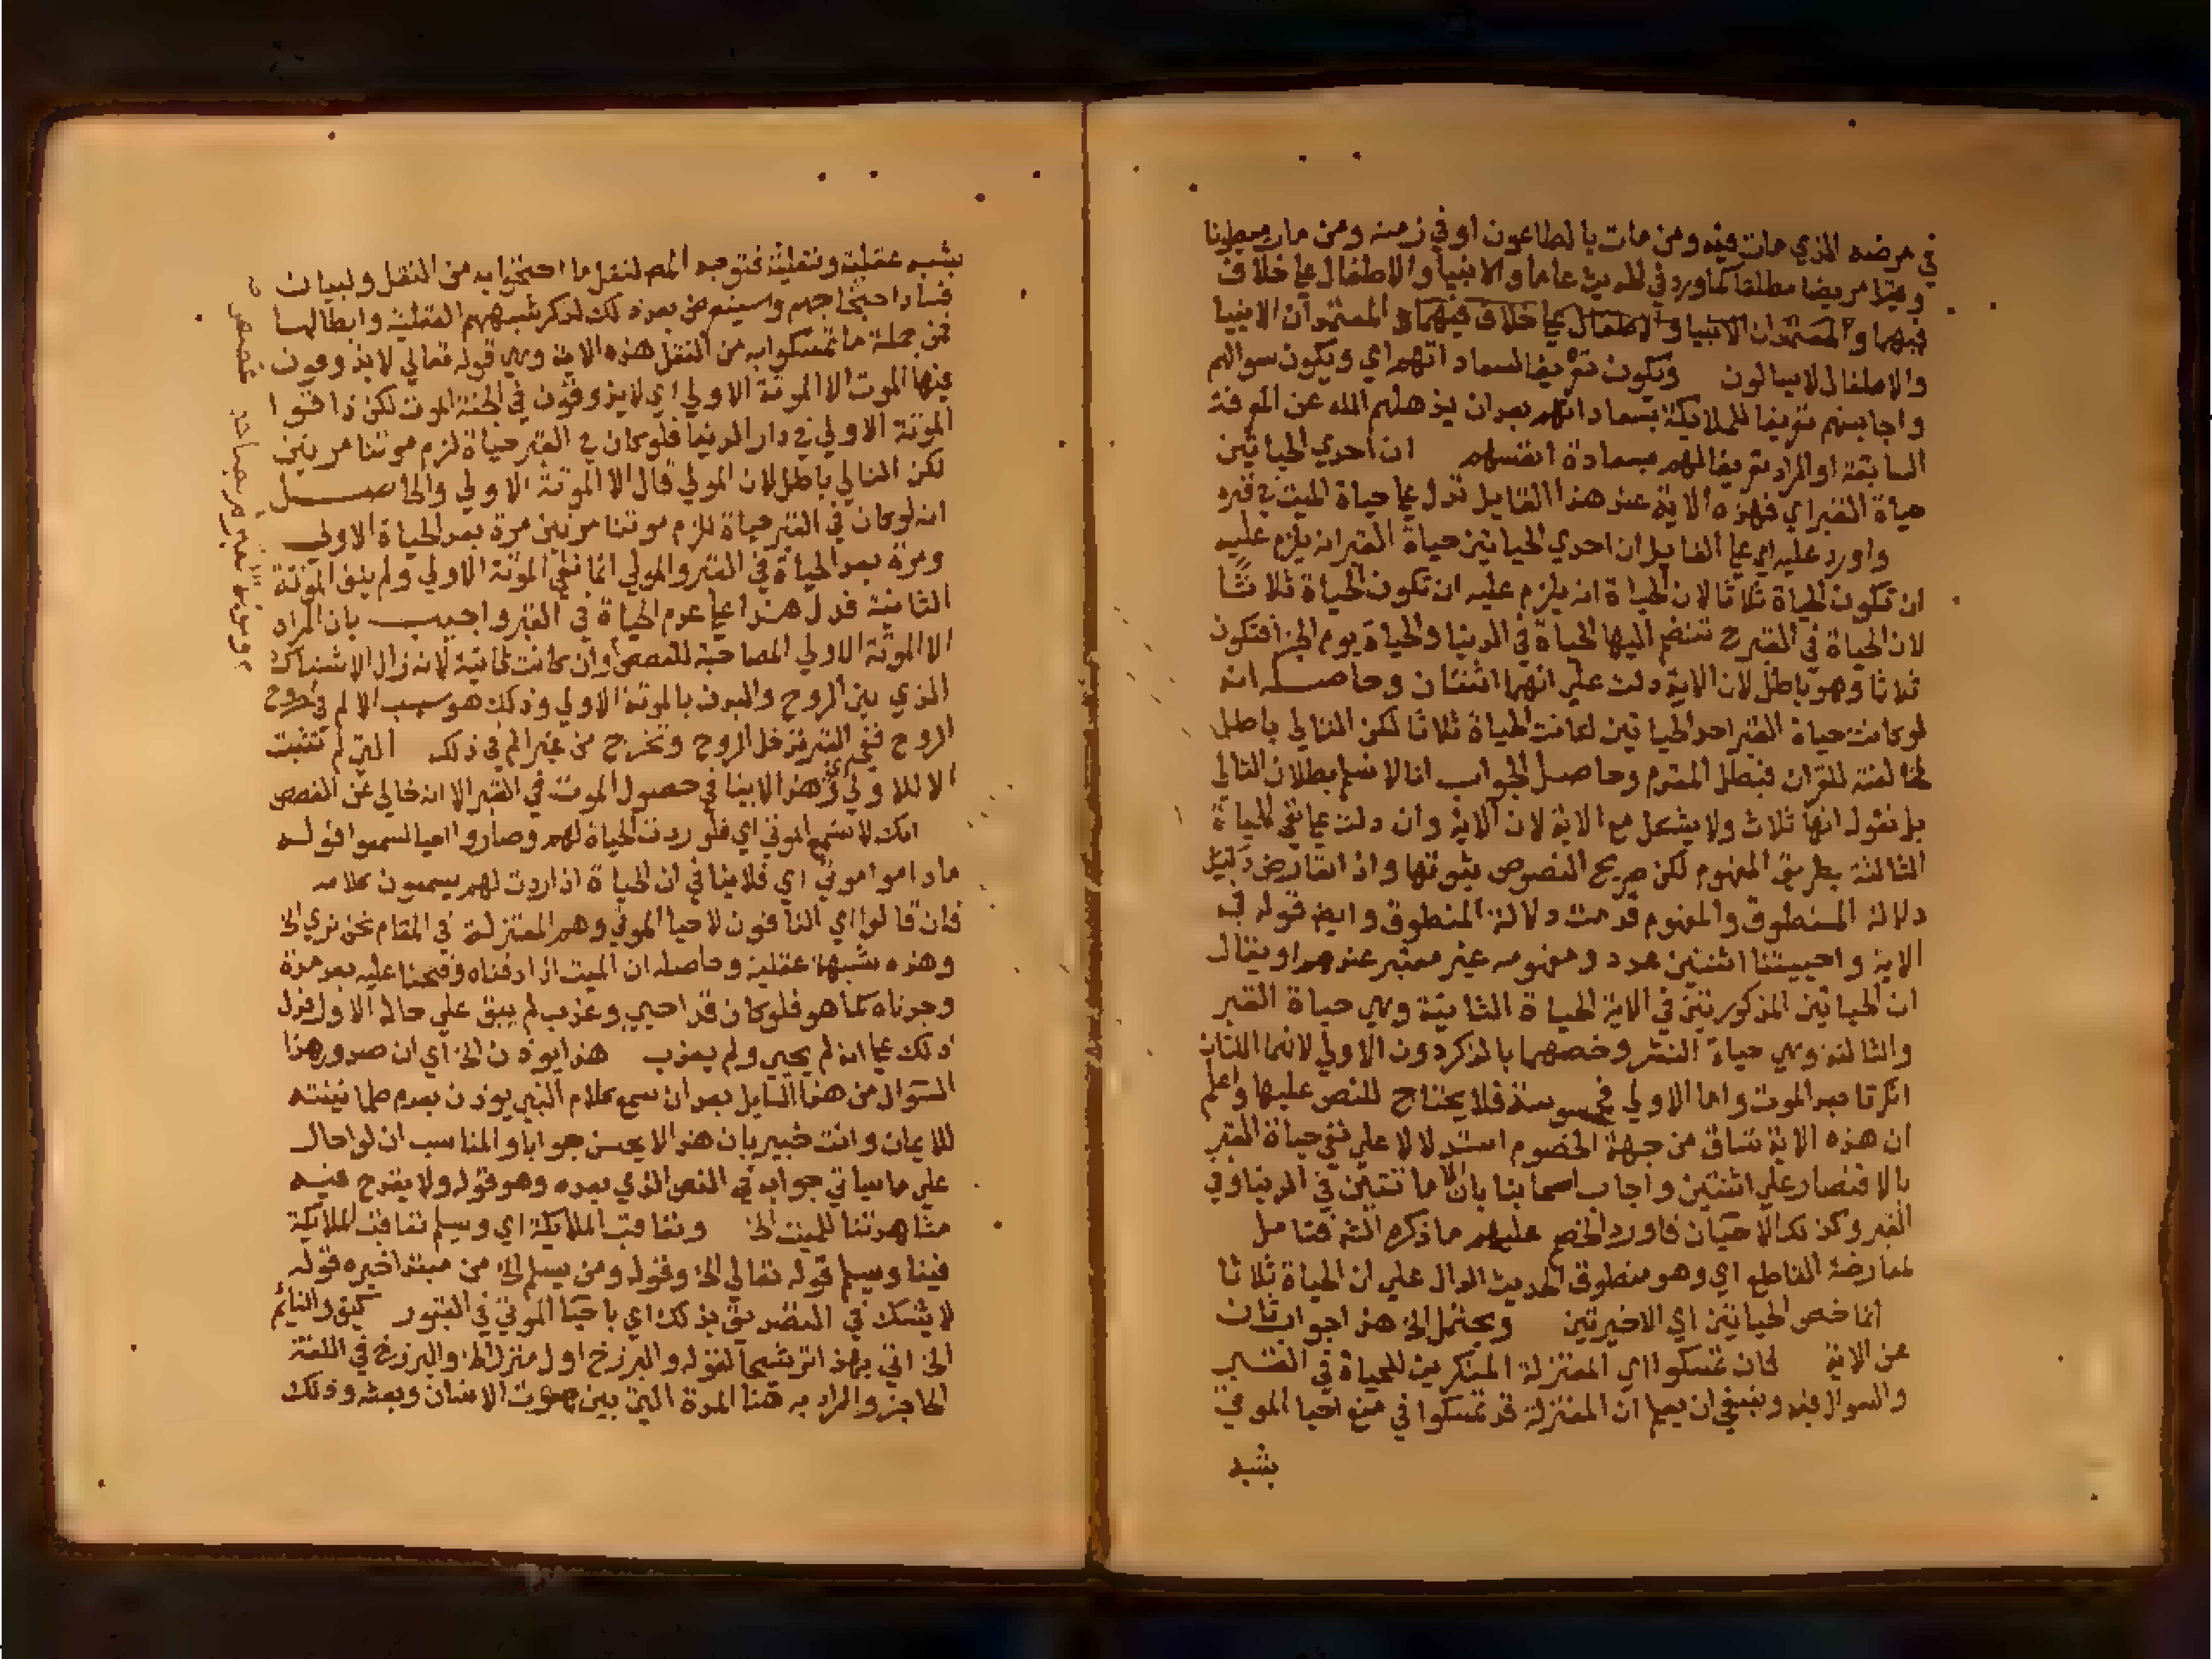 في مرضه الذي مات فيه ومن مات بالطاعون او في زمنه ومن مات مبطونا
وميتا مريضا مطلقا كما ورد في الحديث عاما والانبيا والاطفال علي خلاف
فيهما والمعتمد ان الانبيا والاطفال علي خلاف فيهما والمعتمد ان الانبيا
والاطفال لا يسالون ويكون تعريفا لسعاداتهم اي ويكون سوالهم
واجابتهم تعريفا للملايكة بسعاداتهم بعد ان يذهلهم الله عن المعرفة
السابقة او المراد تعريفا لهم بسعادة انفسهم ان احدي الحياتين
حياة القبر اي فهذه الاية عند هذا القايل تدل علي حياة الميت في قبره
واورد عليه اي علي القايل ان احدي الحياتين حياة القبر انه يلزم عليه
ان تكون الحياة ثلاثا لان الحياة انه يلزم عليه ان تكون الحياة ثلاثا
لان الحياة في القبر ح تنضم اليها الحياة في الدنيا والحياة يوم الجزا فتكون
ثلاثا وهو باطل لان الاية دلت علي انهما اثنتان وحاصله انه
لو كانت حياة القبر احد الحياتين لكانت الحياة ثلاثا لكن التالي باطل
لمخالفته للقران فبطل المقدم وحاصل الجواب انا لا نسلم بطلان التالي
بل نقول انها ثلاث ولا يشكل مع الاية لان الاية وان دلت علي نفي الحياة
الثالثة بطريق المفهوم لكن صريح النصوص بثبوتها واذا تعارض دليل
دلالة المنطوق والمفهوم قدمت دلالة المنطوق وايضا قوله في
الاية واحييتنا اثنتين عدد ومفهومه غير معتبر عندهم او يقال
ان الحياتين المذكورتين في الاية الحياة الثانية وهي حياة القبر
والثالثة وهي حياة النشر وخصهما بالذكر دون الاولي لانهما اللتان
انكرتا بعد الموت واما الاولي فمحسوسة فلا يحتاج للنص عليها واعلم
ان هذه الاية تساق من جهة الخصوم استدلالا علي نفي حياة القبر
بالاقتصار علي اثنتين واجاب اصحابنا بان الاماتتين في الدنيا وفي
القبر وكذلك الاحيان فاورد الخصم عليهم ما ذكره الش فتامل
لمعارضة القاطع اي وهو منطوق الحديث الدال علي ان الحياة ثلاثا
انما خص الحياتين اي الاخيرتين ويحتمل الخ هذا جواب ثان
عن الاية فان تمسكوا اي المعتزلة المنكرين للحياة في القبر
والسوال فيه وينبغي ان يعلم ان المعتزلة قد تمسكوا في منع احيا الموتي
بشبه
بشبه عقلية ونقلية فتوجه المصـ لنقل ما احتجوا به من النقل ولبيان
فساد احتجاجهم وسيتعرض بعد ذلك لذكر شبههم العقلية وابطالها
فمن جملة ما تمسكوا به من النقل هذه الاية وهي قوله تعالي لا يذوقون
فيها الموت الا الموتة الاولي اي لا يذوقون في الجنة الموت لكن ذاقوا
الموتة الاولي في دار الدنيا فلو كان في القبر حياة لزم موتنا مرتين
لكن التالي باطل لان المولي قال الا الموتة الاولي والحاصل
انه لو كان في القبر حياة للزم موتنا مرتين مرة بعد الحياة الاولي
ومرة بعد الحياة في القبر والمولي انما نفي الموتة الاولي ولم ينف الموتة
الثانية فدل هذا علي عدم الحياة في القبر واجيب بان المراد
الا الموتة الاولي المصاحبة للغصص وان كانت ثانية لانه زال الاشتباك
الذي بين الروح والبدن بالموتة الاولي وذلك هو سبب الالم في خروج
الروح ففي القبر تدخل الروح وتخرج من غير الم في ذلك التي لم تثبت
الا للاولي هذا لا ينافي حصول الموت في القبر الا انه خالي عن الغصص
انك لا تسمع الموتي اي فلو ردت الحياة لهم وصاروا احيا لسمعوا قوله
ما داموا موتي اي فلا ينافي ان الحياة اذا ردت لهم يسمعون كلامه
فان قالوا اي النافون لاحيا الموتي وهم المعتزلة في المقام نحن نري الخ
وهذه شبهة عقلية وحاصله ان الميت اذا دفناه وفتحنا عليه بعد مدة
وجدناه كما هو فلو كان قد احيي وعذب لم يبق علي حاله الاول فدل
ذلك علي انه لم يحيي ولم يعذب هذا يوذن الخ اي ان صدور هذا
السوال من هذا السايل بعد ان سمع كلام النبي يوذن بعدم طمانينته
للايمان وانت خبير بان هذا لا يحسن جوابا والمناسب ان لو احال
علي ما سياتي جوابه في النص الذي بعده وهو قوله ولا يقدح فيه
مشاهدتنا للميت الخ وتعاقب الملايكة اي وسلم تعاقب الملايكة
فينا وسلم قوله تعالي الخ وقوله ومن يسلم الخ من مبتدا خبره قوله
لا يشك في التصديق بذلك اي باحيا الموتي في القبور كيف والنايم
الخ اتي بهذا ترشيحا لقوله والبرزخ اول منزل الخ والبرزخ في اللغة
الحاجز والمراد به هنا المدة التي بين موت الانسان وبعثه وذلك